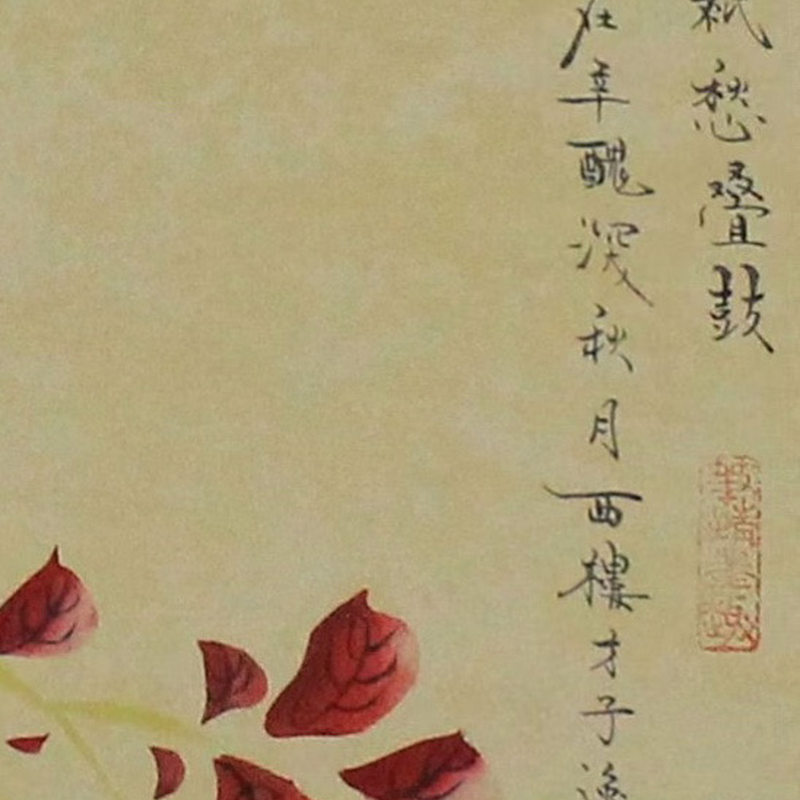 愁疊鼓
在辛醜深秋月西樓才子